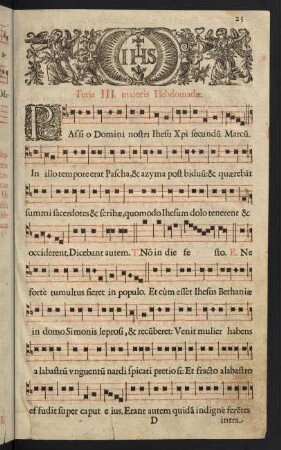 25
IHS
Feria III. maioris Hebdomadæ.
PAssi o Domini nostri Ihesu Xpi secundũ Marcũ.
In illo tempore erat Pascha, & azyma post biduũ: & quærebãt
summi sacerdotes, & scribæ, quomodo Ihesum dolo tenerent &
occiderent. Dicebant autem. T. Nõ in die fe sto. E. Ne
forte tumultus fieret in populo. Et cùm esset Ihesus Bethaniæ
in domo Simonis leprosi, & recũberet: Venit mulier habens
a labastrũ vnguentũ nardi spicati pretio si: Et fracto alabastro
ef fudit super caput e ius. Erant autem quidã indignè ferẽtes
D
intra